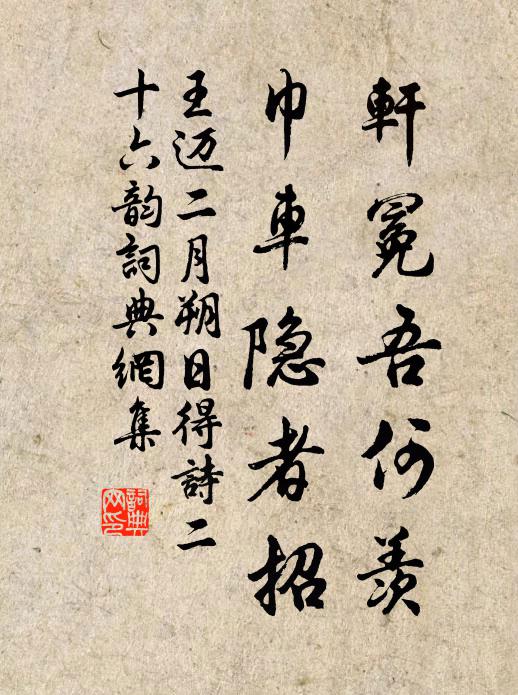 軒冕吾何羡
巾車隐者招
王迈二月朔日得詩二
十六韵詞典網集
詞典网印